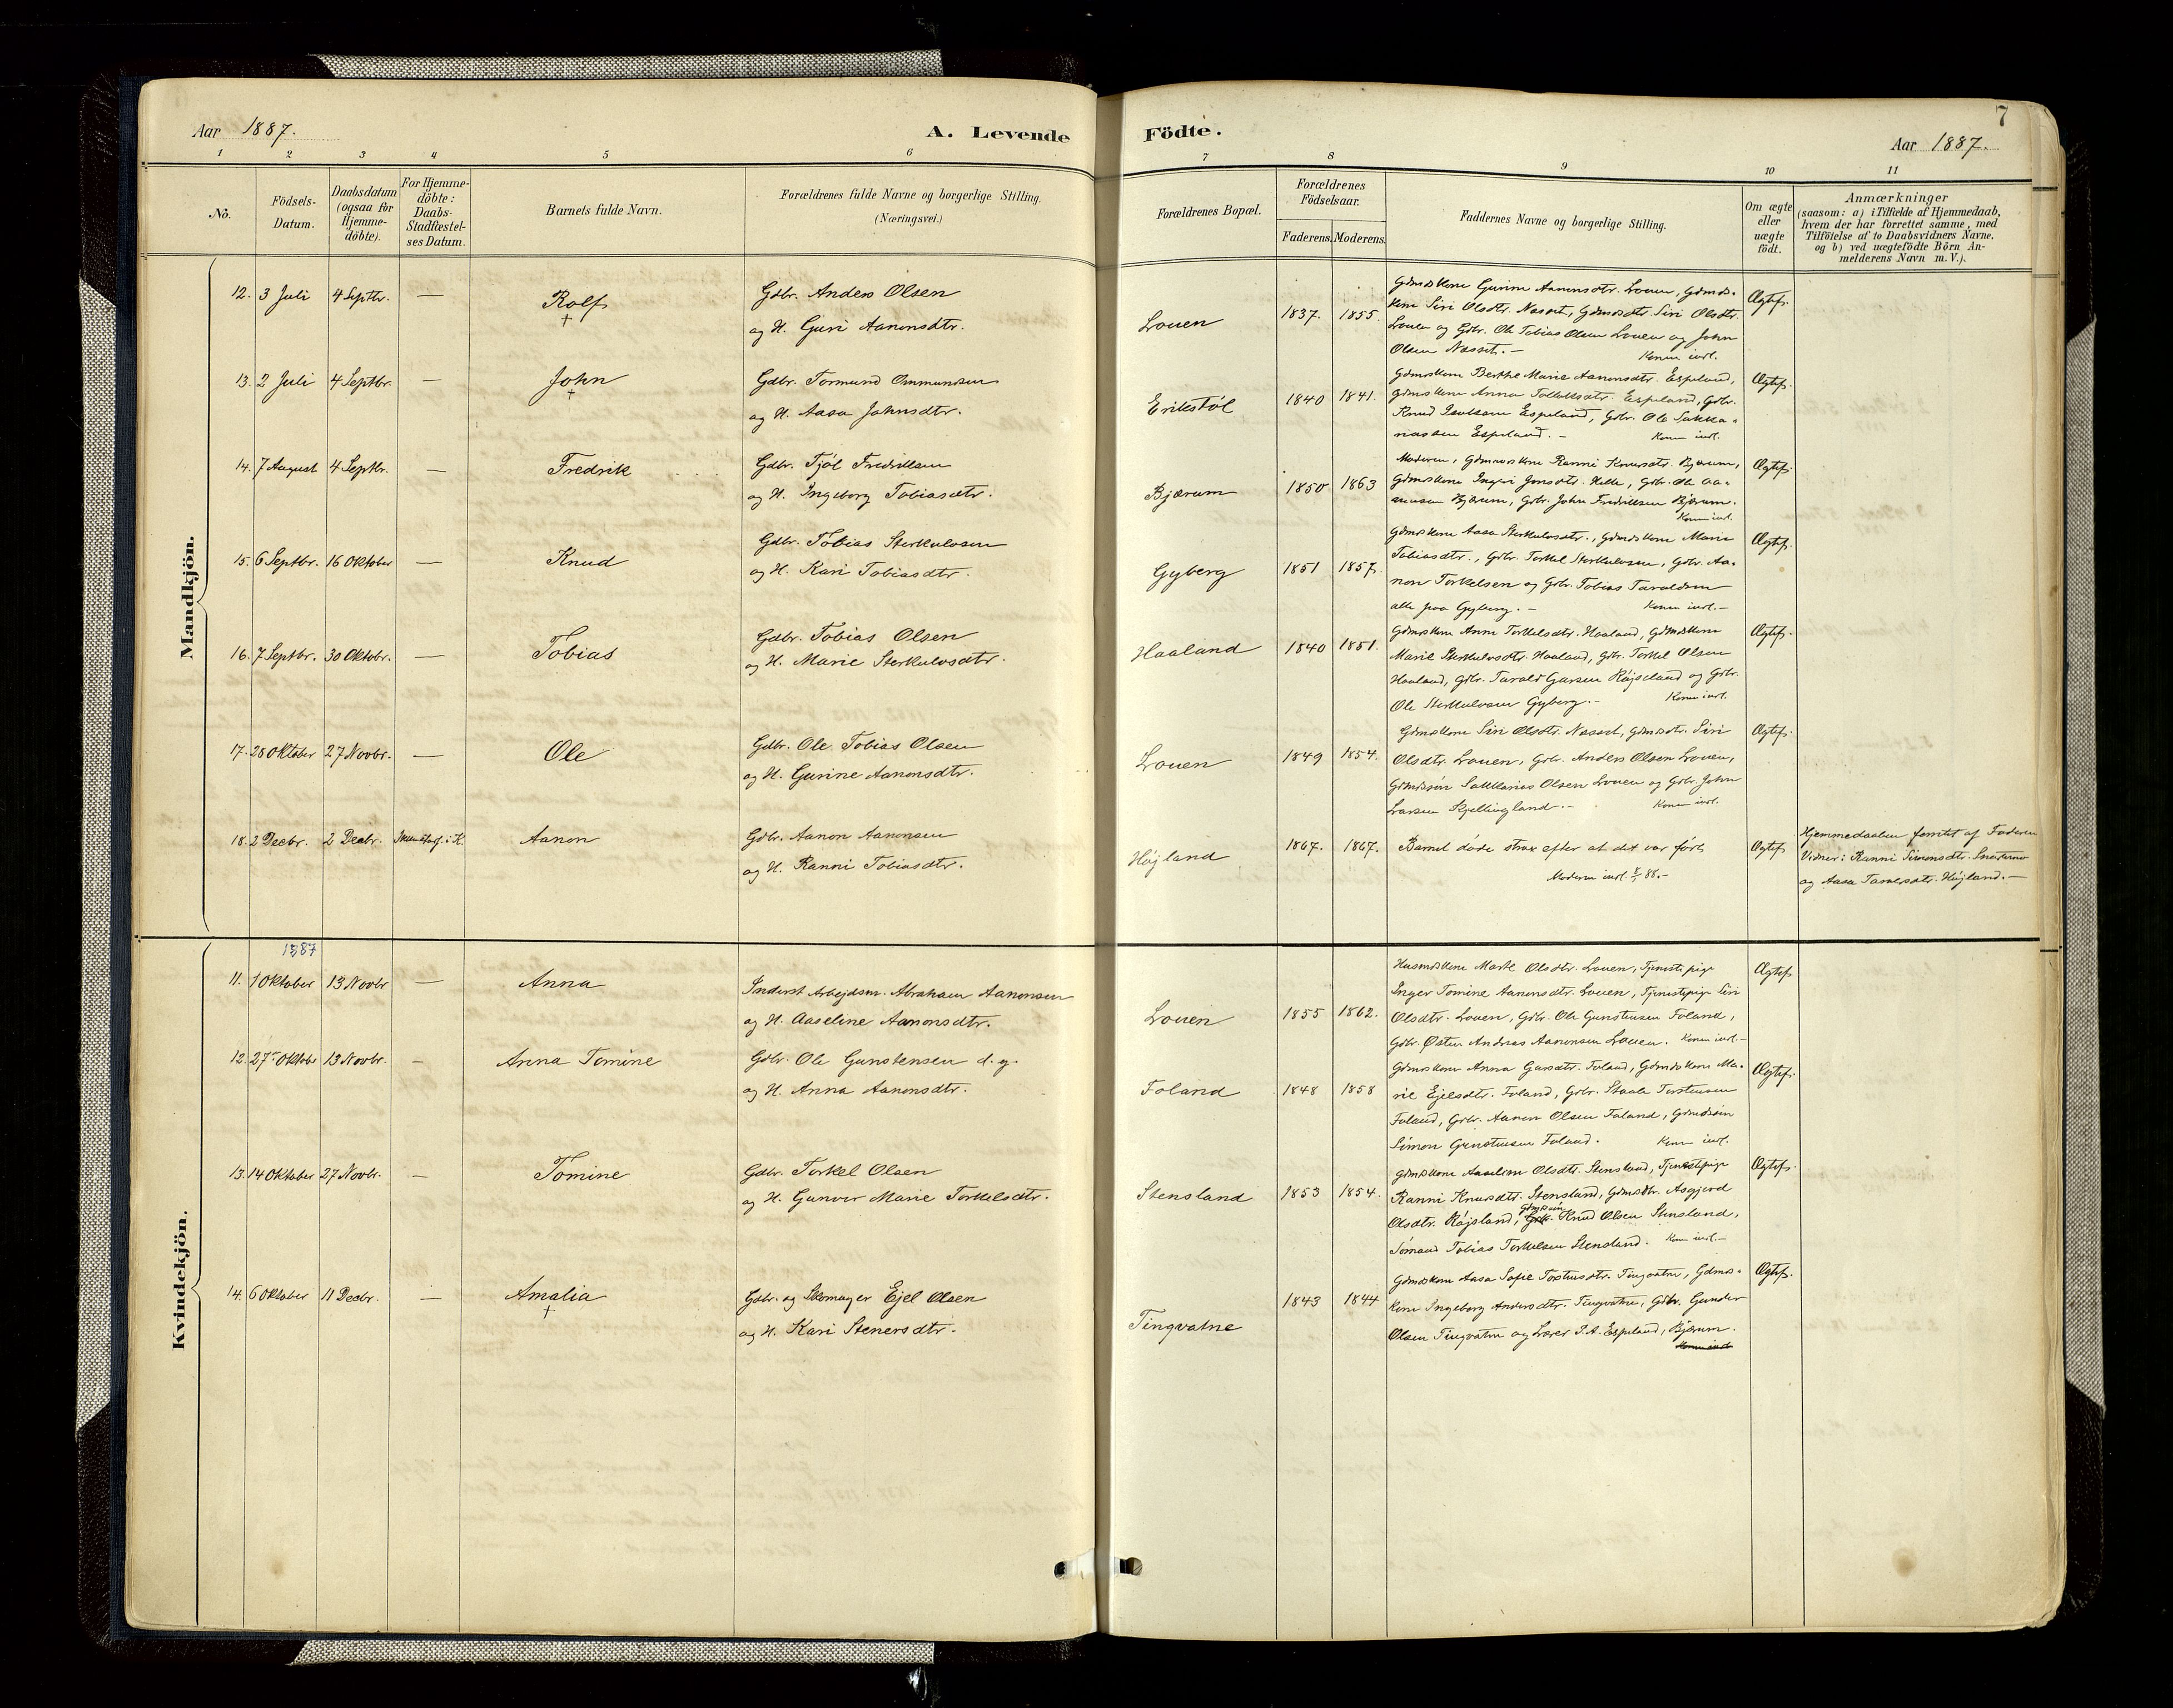 Aar 1887.
A. Levende
Födte.
7
Aar 1887.
1 2 3 4 5 6 7 8 9 10 11
No.
Födsels-Datum.
Daabsdatum (ogsaa for Hjemme-döbte).
For Hjemme-döbte: Daabs-Stadfæstel-ses Datum.
Barnets fulde Navn.
Forældrenes fulde Navne og borgerlige Stilling.
(Næringsvei.)
Forældrenes Bopæl.
Forældrenes Födselsaar.
Faderens. Moderens.
Faddernes Navne og borgerlige Stilling.
Om ægte eller uægte födt.
Anmærkninger
(saasom: a) i Tilfælde af Hjemmedaab,
hvem der har forrettet samme, med
Tilföielse af to Daabsvidners Navne,
og b) ved uægtefödte Börn An-
melderens Navn m. V.).
Mandkjön.
12. 3 Juli 4 Septbr. — Rolf † Gdbr. Anders Olsen
og H. Guri Aanonsdtr.
Louen 1837. 1855.
Gdmdskone Gurine Aanonsdtr. Louen, Gdmds-
kone Siri Olsdtr. Nasset, Gdmdsdtr. Siri Olsdtr.
Louen og Gdbr. Ole Tobias Olsen Louen og John
Olsen Nasset. — Konen indl.
Ægtef.
13. 2 Juli 4 Septbr. — John † Gdbr. Tormund Ommundsen
og H. Aasa Johnsdtr.
Erikstöl 1840 1841.
Gdmdskone Berthe Marie Aanonsdtr. Espeland,
Gdmdskone Anna Tollelsdtr. Espeland, Gdbr.
Knud Espeland, Gdbr. Ole Sakka-
riassen Espeland. — Konen indl.
Ægtef.
14. 7 August 4 Septbr. — Fredrik Gdbr. Tjöl Fredriksen
og H. Ingeborg Tobiasdtr.
Bjærum 1850 1863
Moderen, Gdmandskone Ranni Knudsdtr. Bjærum,
Gdmdskone Ingeri Jonsdtr. Helle, Gdbr. Ole Aa-
nensen Bjærum, Gdbr. John Fredriksen Bjærum.
Konen indl.
Ægtef.
15. 6 Septbr. 16 Oktober — Knud Gdbr. Tobias Sterkulosen
og H. Kari Tobiasdtr.
Gyberg 1851 1857.
Gdmdskone Aasa Sterkulosdtr., Gdmdskone Marie
Tobiasdtr., Gdbr. Torkel Sterkulosen, Gdbr. Aa-
non Torkelsen og Gdbr. Tobias Taraldsen
alle paa Gyberg. — Konen indl. —
Ægtef.
16. 7 Septbr. 30 Oktobr. — Tobias Gdbr. Tobias Olsen
og H. Marie Sterkulosdtr.
Haaland 1840 1851.
Gdmdskone Anne Torkelsdtr. Haaland, Gdmdskone
Marie Sterkulosdtr. Haaland, Gdbr. Torkel Olsen
Haaland, Gdbr. Tarald Röjseland og Gdbr.
Ole Sterkulosen Gyberg. — Konen indl.
Ægtef.
17. 28 Oktober 27 Novbr. — Ole Gdbr. Ole Tobias Olsen
og H. Gurine Aanonsdtr.
Louen 1849 1854.
Gdmdskone Siri Olsdtr. Nasset, Gdmdsdtr. Siri
Olsdtr. Louen, Gdbr. Anders Olsen Louen,
Gdmdssön Sakkarias Olsen Louen og Gdbr. John
Larsen Kjellingland. — Konen indl.
Ægtef.
18. 2 Decbr. 2 Decbr. Ikke stadf. i K. Aanon Gdbr. Aanon Aanonsen
og H. Ranni Tobiasdtr.
Höjland 1867. 1867.
Barnet döde strax efter at det var födt
Moderen indl. 88. —
Ægtef
Hjemmedaaben forrettet af Faderen
Vidner: Ranni Simonsdtr.
og Aasa Höjland. —
Kvindekjön.
1887
11. 1 Oktober 13 Novbr — Anna Inderst Arbejdsm. Abraham Aanonsen
og H. Aaseline Aanonsdtr.
Louen 1855 1862.
Husmdskone Marte Olsdtr. Louen, Tjenestepige
Inger Tomine Aanonsdtr. Louen, Tjenestepige Siri
Olsdtr. Louen, Gdbr. Ole Gunstensen Foland,
Gdbr. Östen Andreas Aanonsen Louen. Konen indl. —
Ægtef
12. 27 Oktobr 13 Novbr. — Anna Tomine Gdbr. Ole Gunstensen d. y.
og H. Anna Aanonsdtr.
Foland 1848 1858
Gdmdskone Anna Foland, Gdmdskone Ma-
rie Ejelsdtr. Foland, Gdbr. Staale Torstensen
Foland, Gdbr. Aanon Olsen Foland, Gdmdssön
Simon Gunstensen Foland. Konen indl.
Ægtef.
13. 14 Oktober 27 Novbr. — Tomine Gdbr. Torkel Olsen
og H. Gunvor Marie Torkelsdtr.
Stensland 1853 1854.
Gdmdskone Aaseline Olsdtr. Stensland, Tjenestepige
Ranni Knudsdtr. Stensland, Gdmdsdtr. Asgjerd
Olsdtr. Röjsland, Gdmdssön Knud Olsen Stensland,
Sömand Tobias Torkelsen Stensland. Konen indl. —
Ægtef.
14. 6 Oktober 11 Decbr. — Amalia † Gdbr. og Skomager Ejel Olsen
og H. Kari Stenersdtr.
Tingvatne 1843 1844
Gdmdskone Aasa Sofie Torstensdtr. Tingvatne, Gdmds-
kone Ingeborg Andersdtr. Tingvatne, Gdbr. Gunder
Olsen Tingvatne og Lærer T. A. Espeland, Bjærum.
Konen indl.
Ægtef.